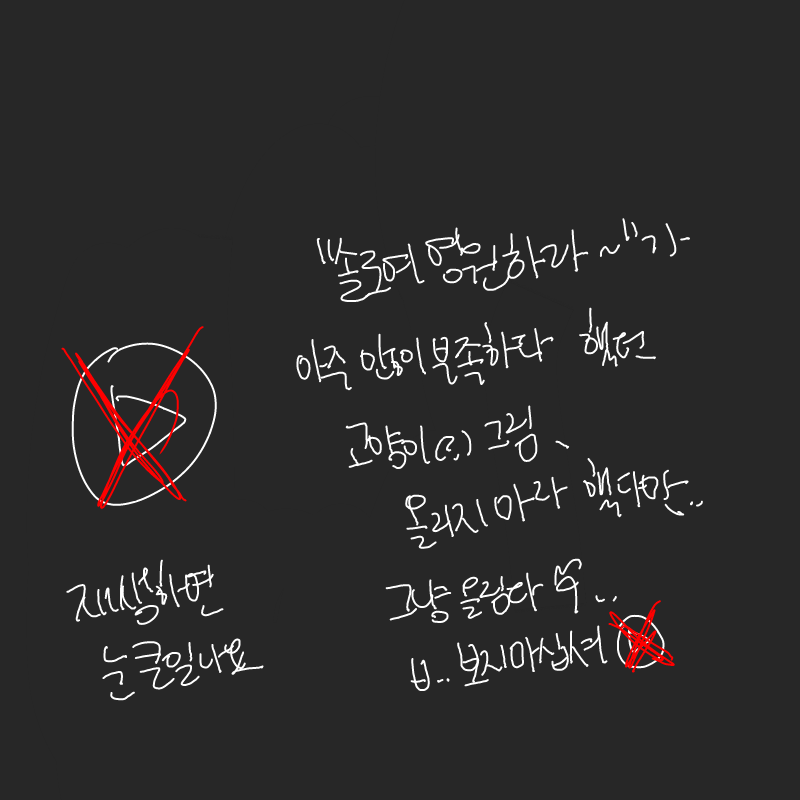 "솔로여 영원하라~"가
아주 많이 부족하다 했던
고양이(?) 그림、
올리지 마라 했다만..
그냥 올림다 ..
ㅂ.. 보지마십셔
재생하면
눈 큰일나요